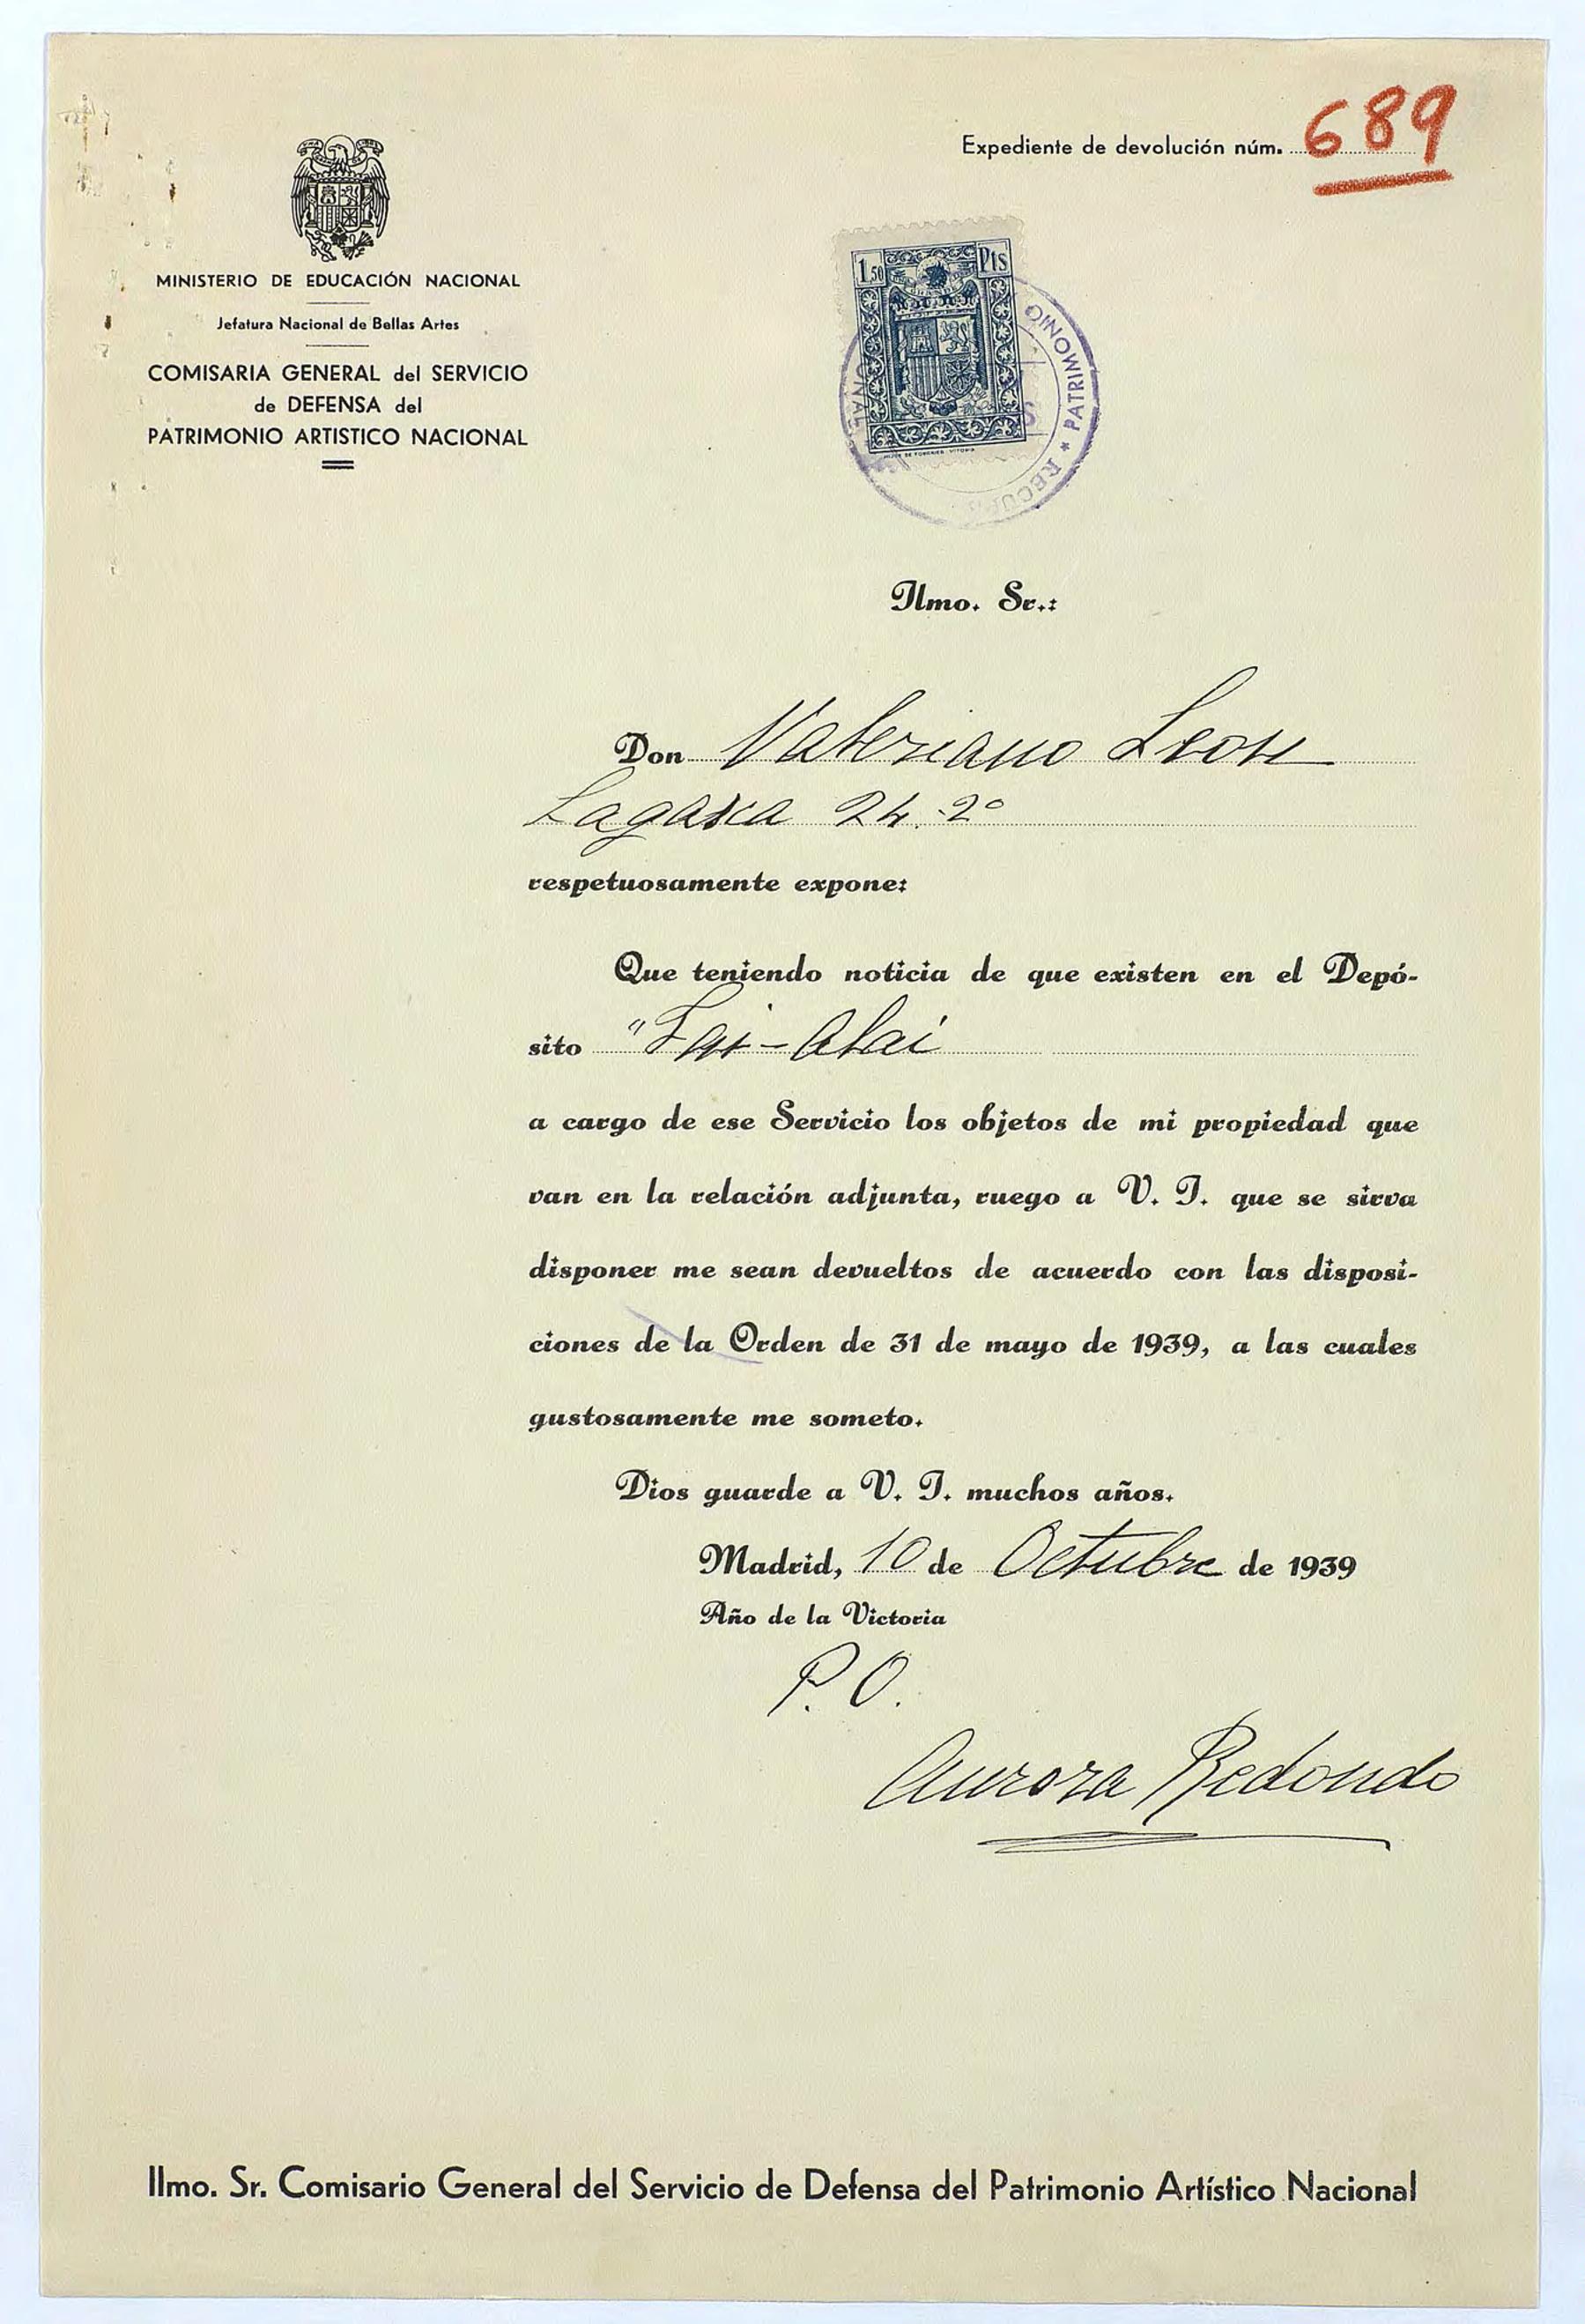 Expediente de devolución núm. 689
MINISTERIO DE EDUCACIÓN NACIONAL
Jefatura Nacional de Bellas Artes
COMISARIA GENERAL del SERVICIO
de DEFENSA del
PATRIMONIO ARTISTICO NACIONAL
1,50 Pts
PATRIMONIO
HIJOS DE FOURNIER - VITORIA
Ilmo. Sr.:
Don Valeriano Leon
Lagasca 24.-2º
respetuosamente expone:
Que teniendo noticia de que existen en el Depó-
sito "Jai-Alai
a cargo de ese Servicio los objetos de mi propiedad que
van en la relación adjunta, ruego a V. I. que se sirva
disponer me sean devueltos de acuerdo con las disposi-
ciones de la Orden de 31 de mayo de 1939, a las cuales
gustosamente me someto.
Dios guarde a V. I. muchos años.
Madrid, 10 de Octubre de 1939
Año de la Victoria
P. O.
Aurora Redondo
Ilmo. Sr. Comisario General del Servicio de Defensa del Patrimonio Artístico Nacional